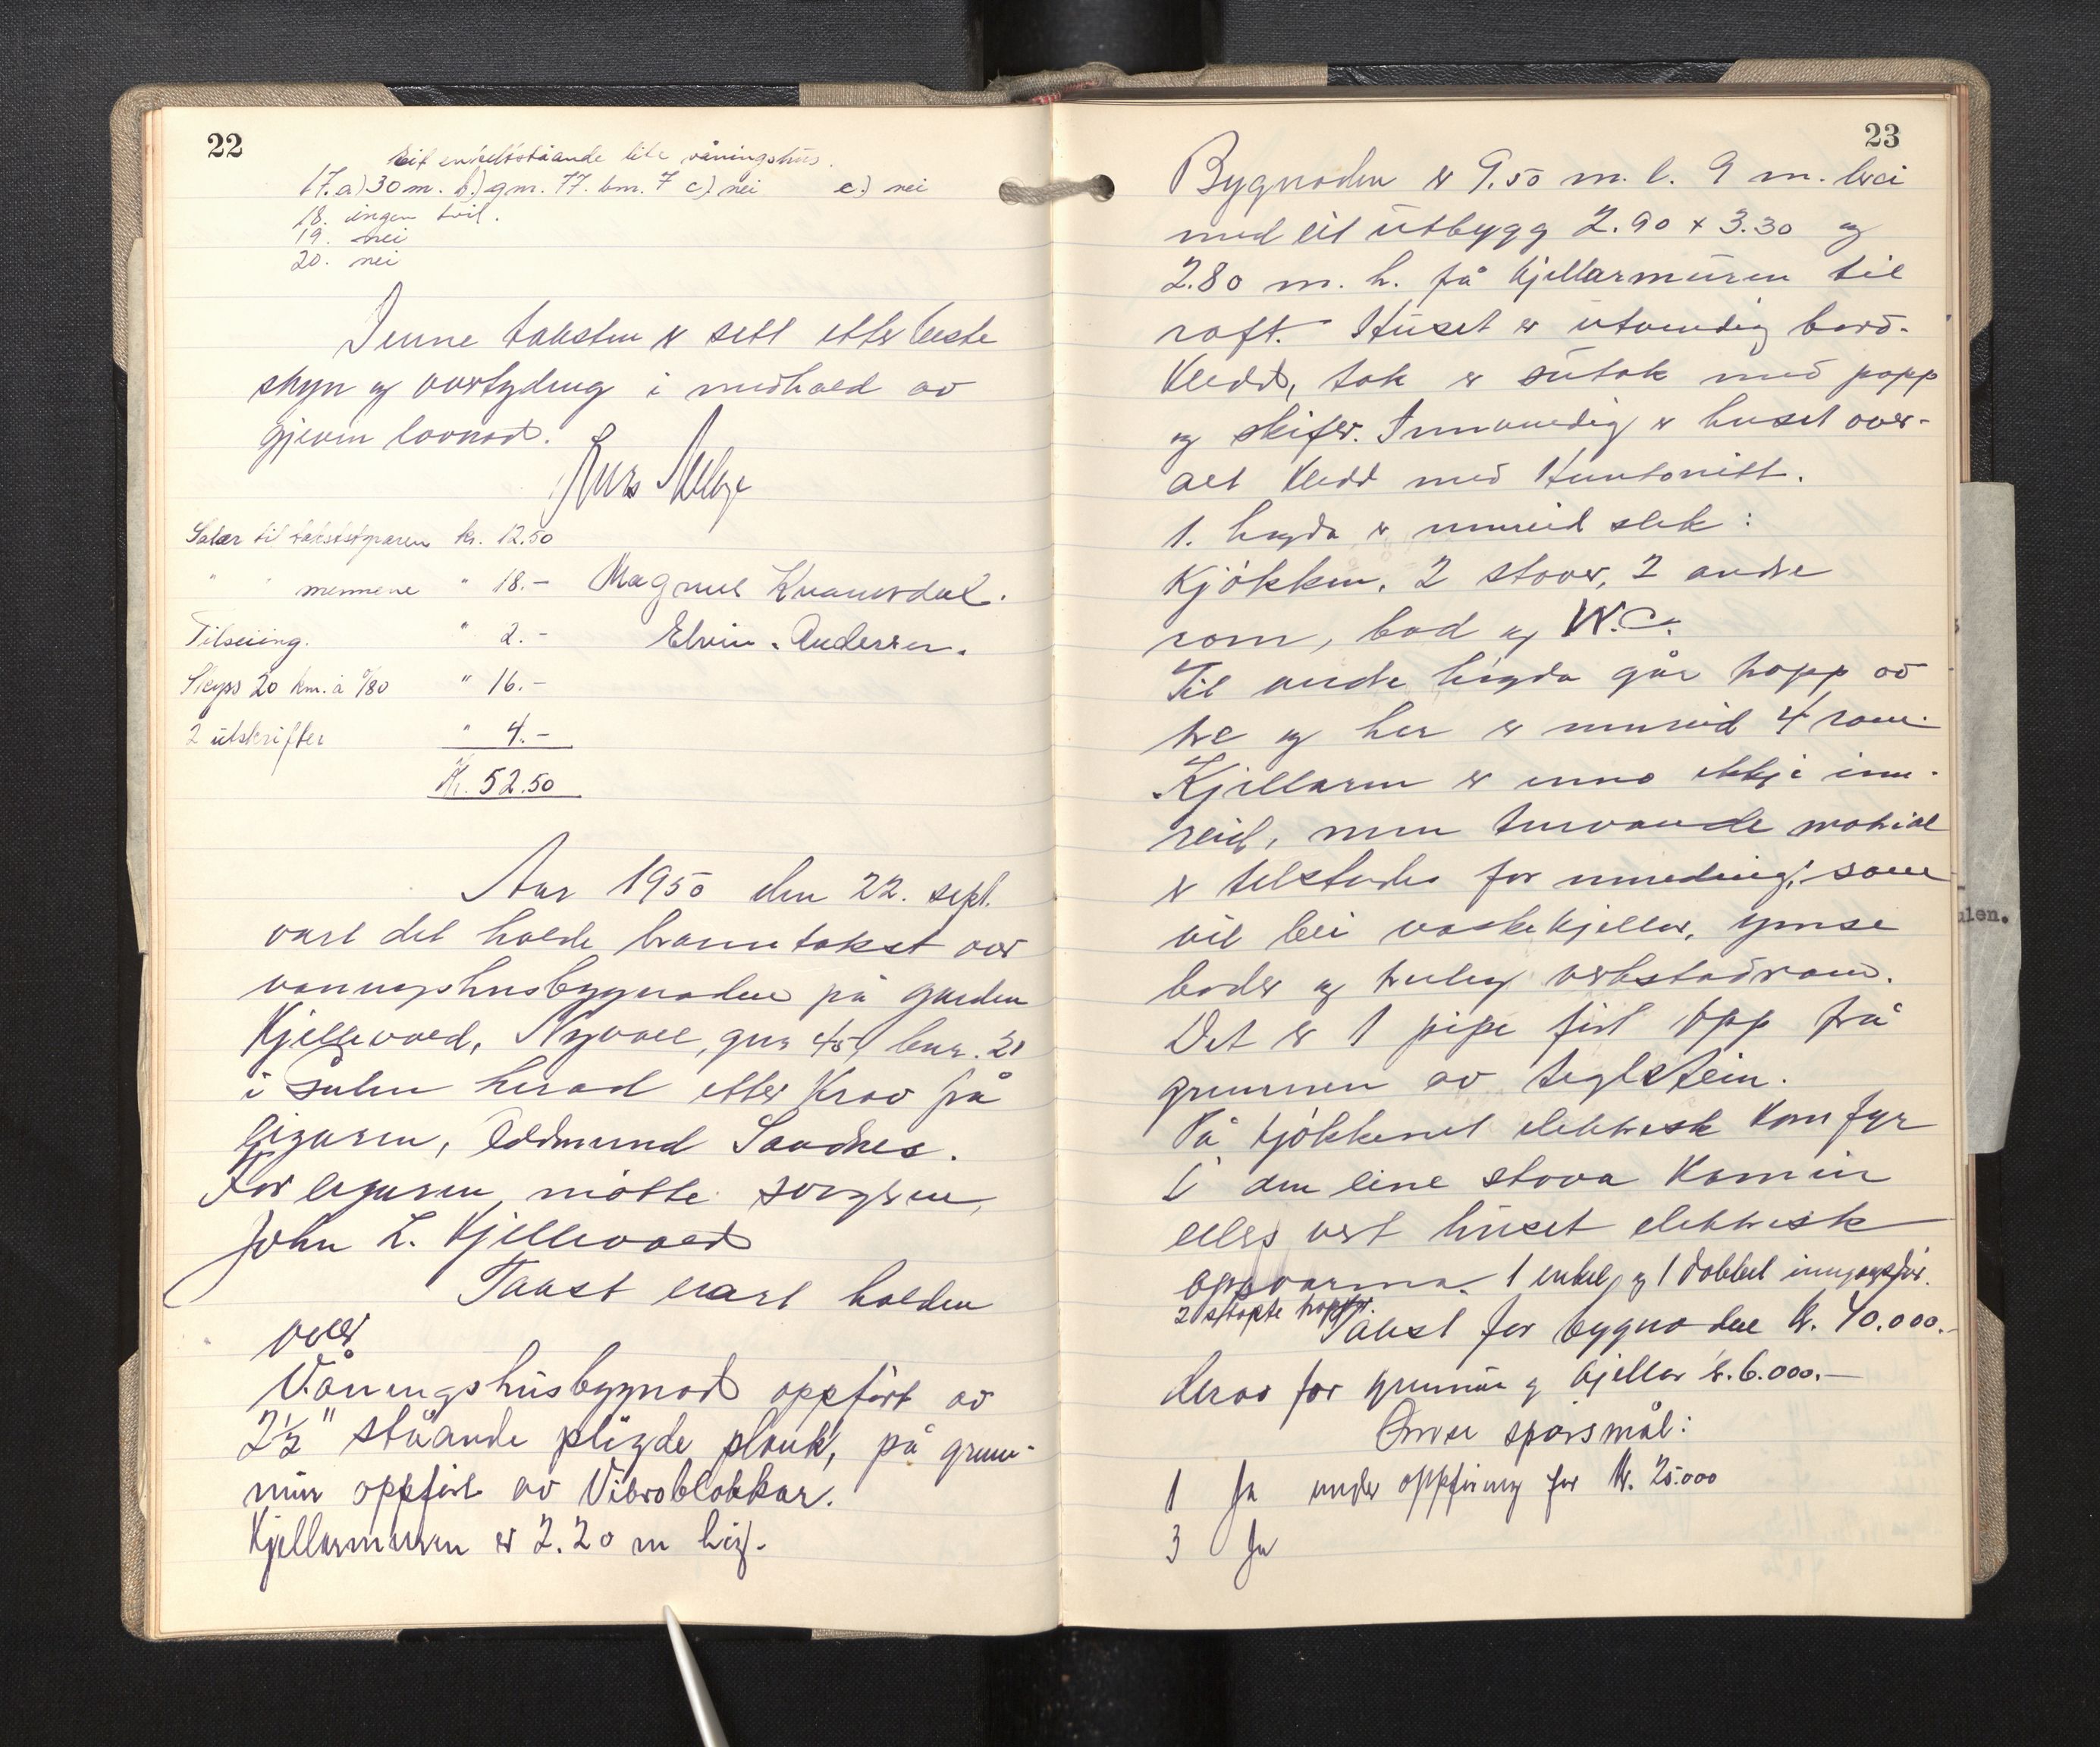 22
Eit enkeltståande lite våningshus.
17. a) 30 m. b.) gnr. 77. bnr. 7 c) nei e.) nei
18. ingen tvil.
19. nei
20. nei
Denne taksten er sett etter beste
skyn og overtyding i medhald av
gjeven lovnad.
Lars Melbye
Salær til takststyraren kr. 12.50
" " mennene " 18.- Magnus Kvamsdal.
Tilseiing. " 2.- Elvin. Andersen.
Skyss 20 km. à 0/80 " 16.-
2 utskrifter " 4.-
Kr. 52.50
Aar 1950 den 22. sept.
vart det halde branntakst over
vaningshusbygnaden på garden
Kjellevold, Nyvoll, gnr 45, bnr. 21
i Sulen herad etter krav frå
eigaren, Oddmund Sandnes.
For eigaren møtte svogeren,
John L. Kjellevold
Takst vart halden
over
Våningshusbygnad oppført av
2½" ståande pløgde plank, på grun-
mur oppført av Vibroblokkar.
Kjellarmuren er 2.20 m høg.
23
Bygnaden er 9.50 m. l. 9 m. brei
med eit utbygg 2.90 x 3.30 og
2.80 m. h. frå kjellarmuren til
raft. Huset er utvendig bord-
kledd, tak er sutak med papp
og skifer. Innvendig er huset over-
alt kledd med Huntonitt.
1. høgda er innreid slik:
Kjøkken, 2 stover, 2 andre
rom, bad og W.C.
Til andre høgda går trapp av
tre og her er innreid 4 rom.
Kjellaren er enno ikkje inn-
reid, men turvande material
er tilstades for innreding, som
vil bli vaskekjellar, ymse
boder og truleg verkstadrom.
Det er 1 pipe ført opp frå
grunnen av teglstein.
På kjøkkenet elektrisk komfyr
I den eine stova Kamin
elles vert huset elektrisk
oppvarma. 1 enkel og 1 dobbel inngangsdør.
2 støpte trapper.
Takst for bygnaden kr. 40.000.-
derav for grunnmur og kjellar kr. 6.000.-
Ymse spørsmål:
1 Ja under oppføring for kr. 25.000
3 Ja
ulen.